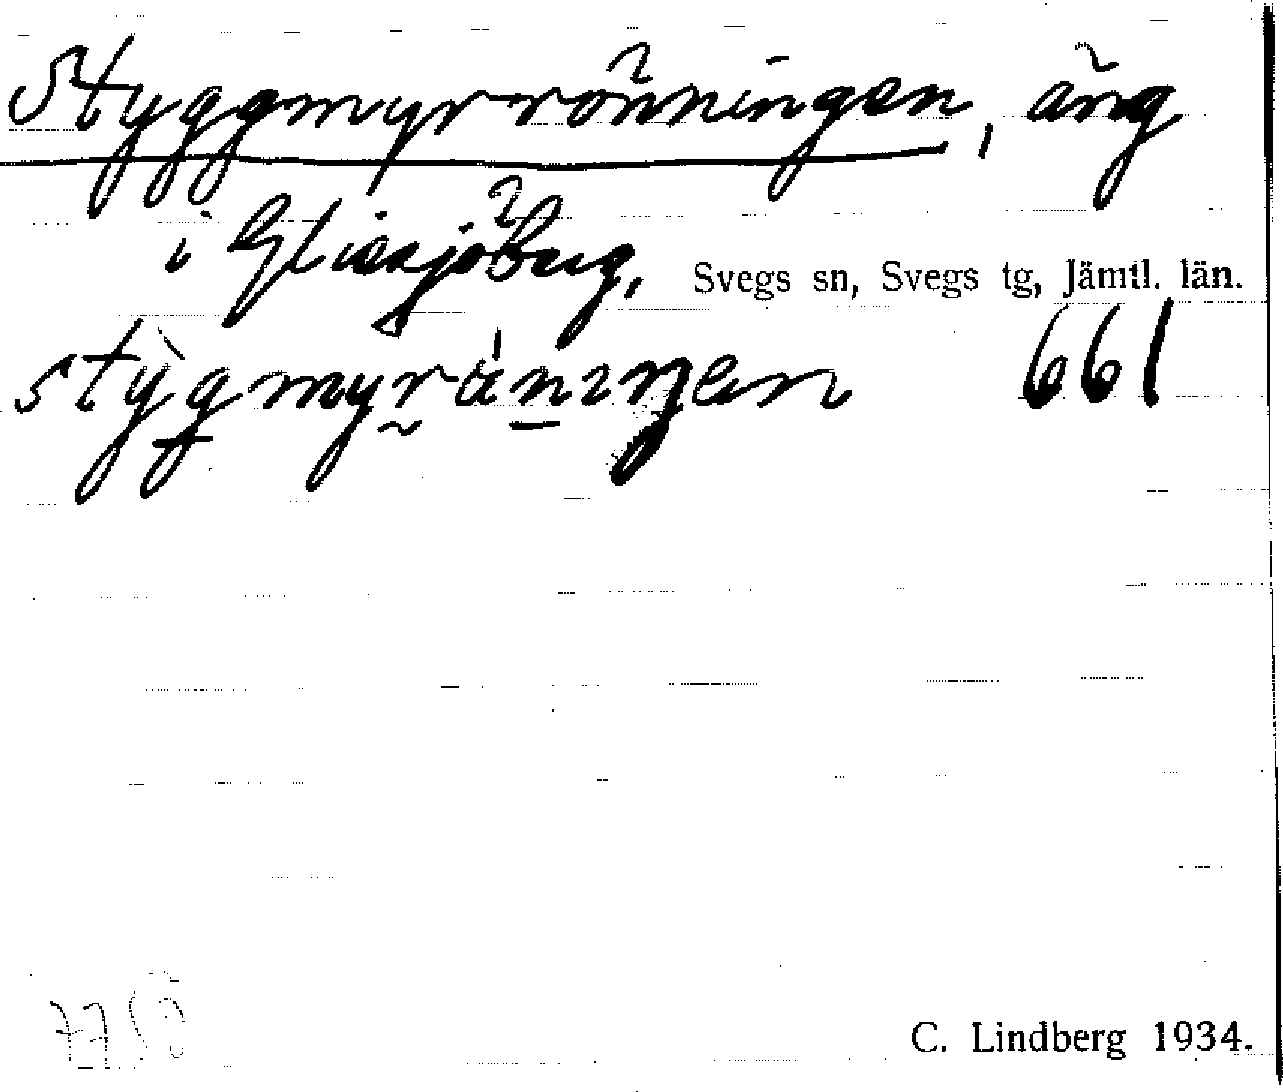 Styggmyrrönningen, äng
i Glissjöberg, Svegs sn, Svegs tg, Jämtl. län.
661
C. Lindberg 1934.